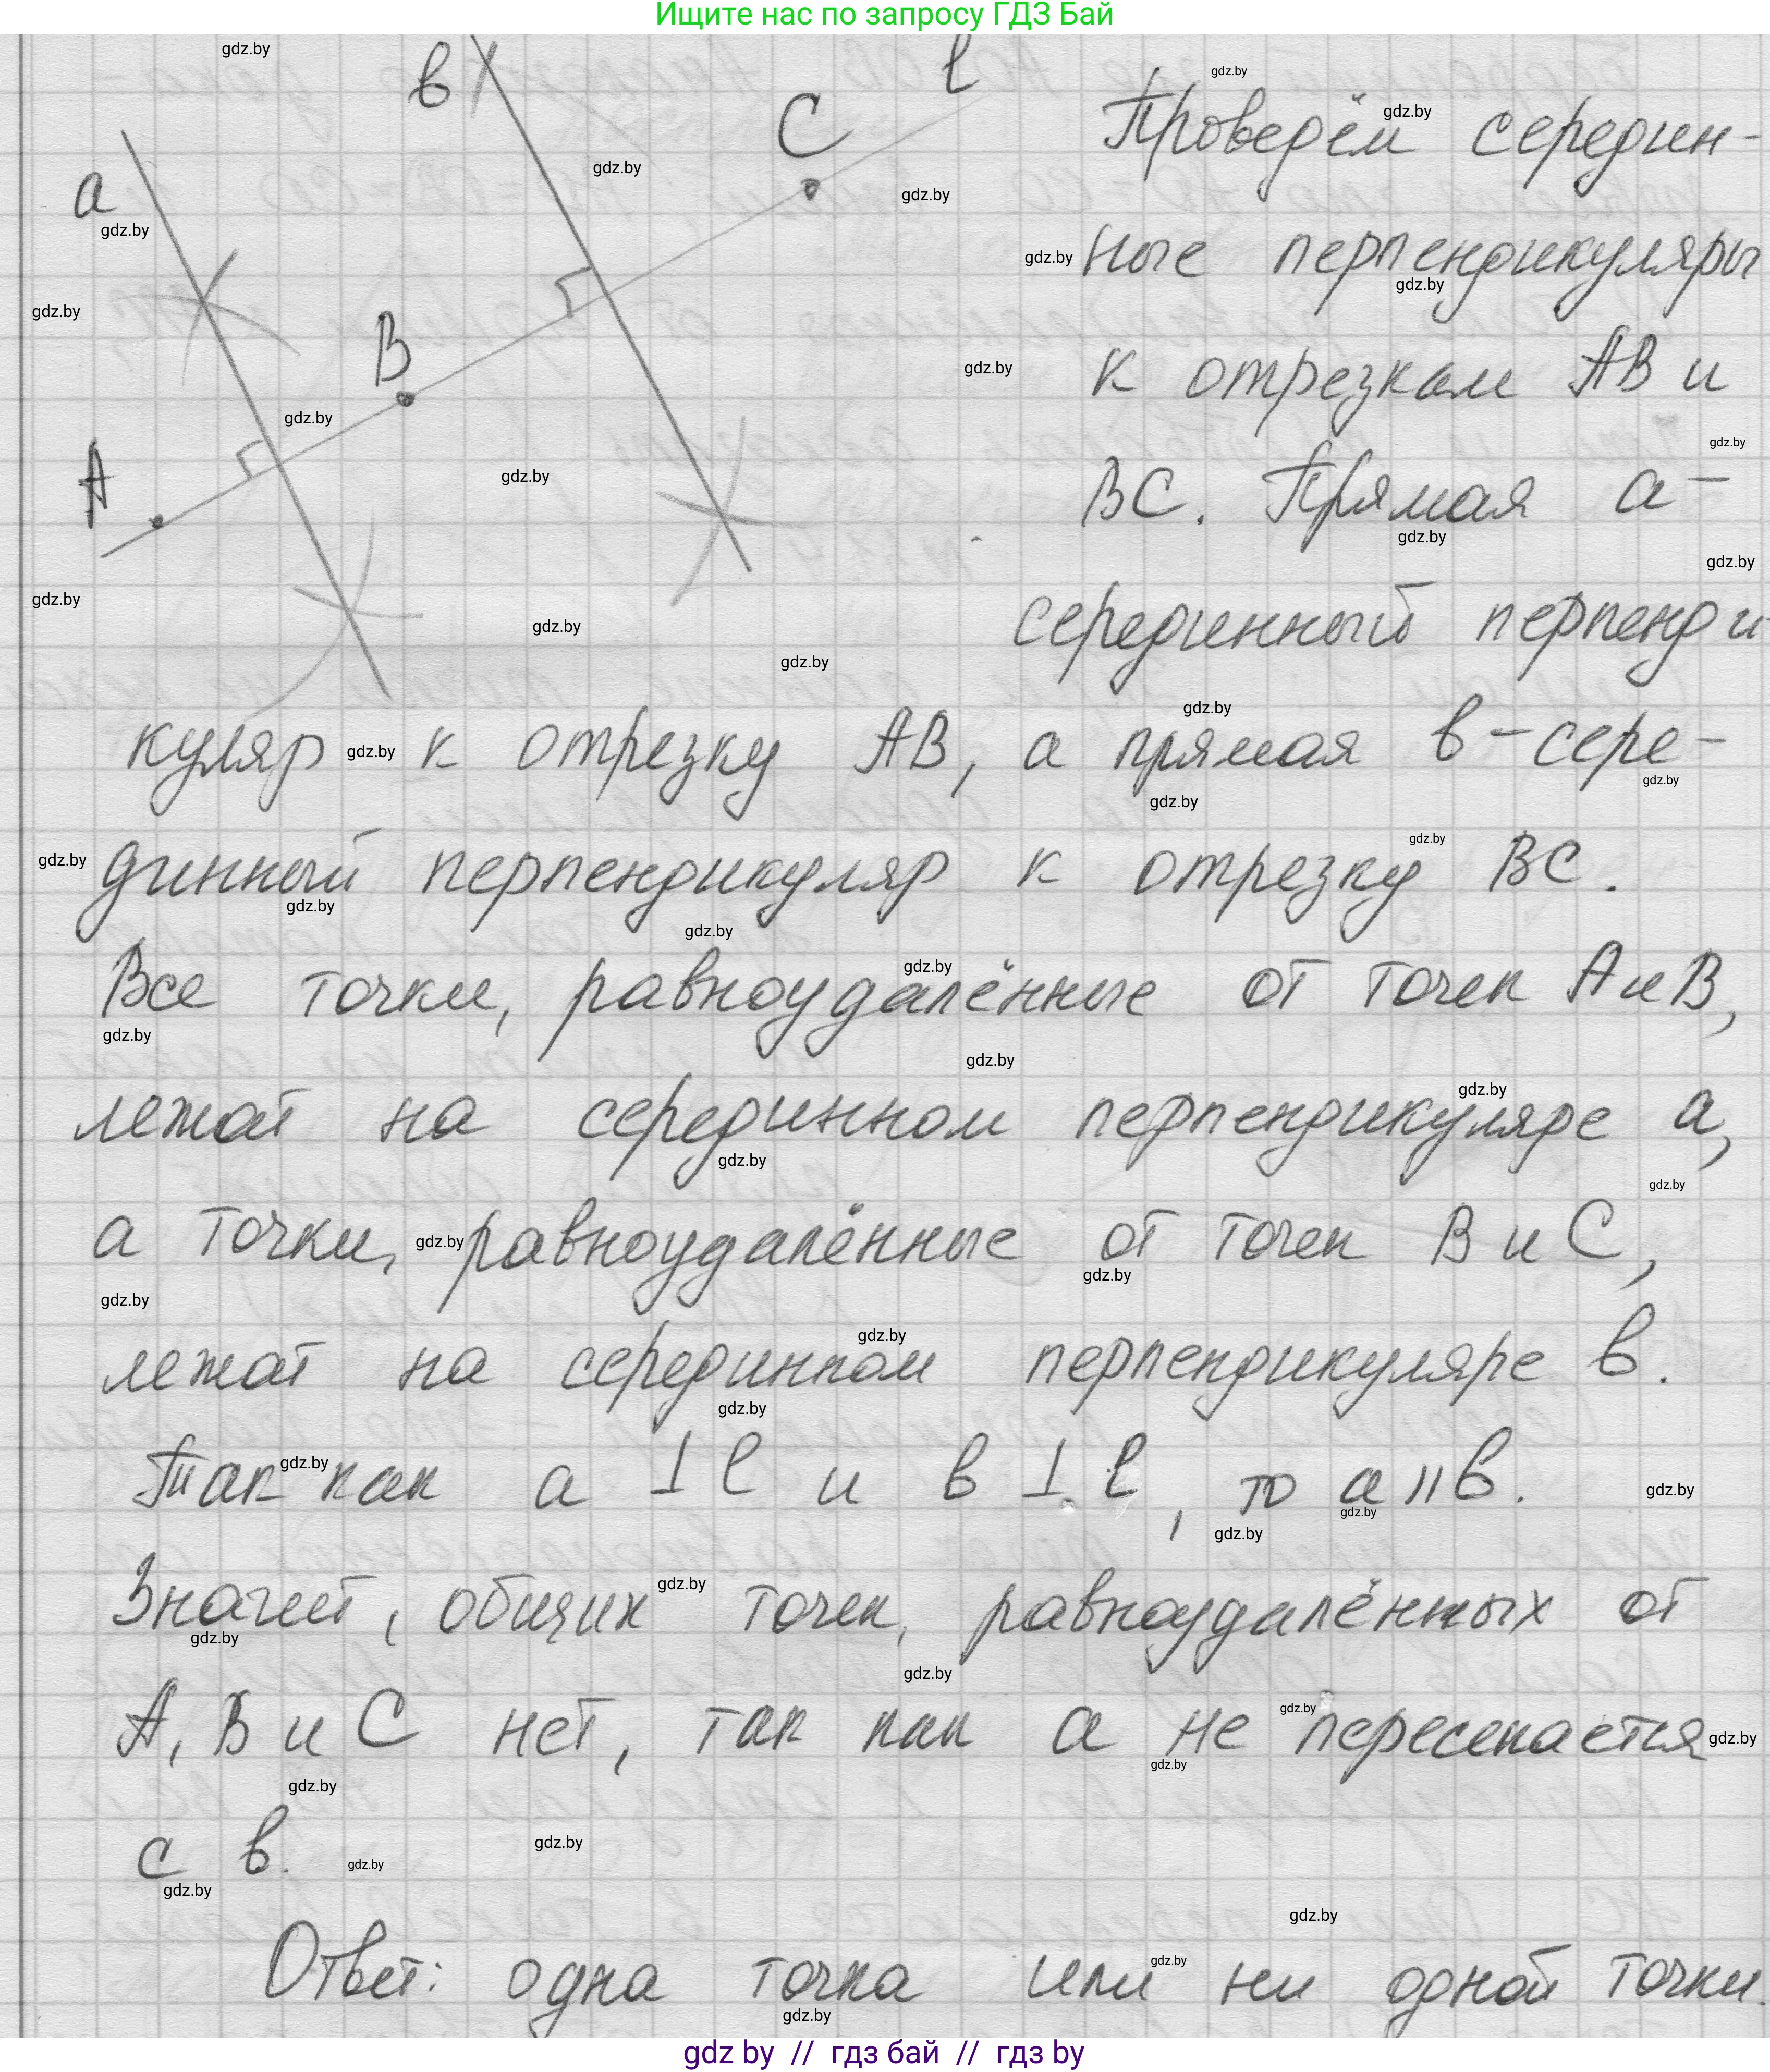 Ищите нас по запросу ГДЗ Бай
a
в
B
A
C
l
Проверём середин-
ные перпендикуляры
к отрезкам AB и
BC. Прямая a –
серединный перпенди
куляр к отрезку AB, а прямая в – сере-
динный перпендикуляр к отрезку BC.
Все точки, равноудалённые от точек A и B,
лежат на серединном перпендикуляре a,
а точки, равноудалённые от точек B и C,
лежат на серединном перпендикуляре в.
Так как a ⊥ l и в ⊥ l, то a || в.
Значит, общих точек, равноудалённых от
A, B и C нет, так как a не пересекается
с в.
Ответ: одна точка или ни одной точки.
gdz by // гдз бай // гдз by